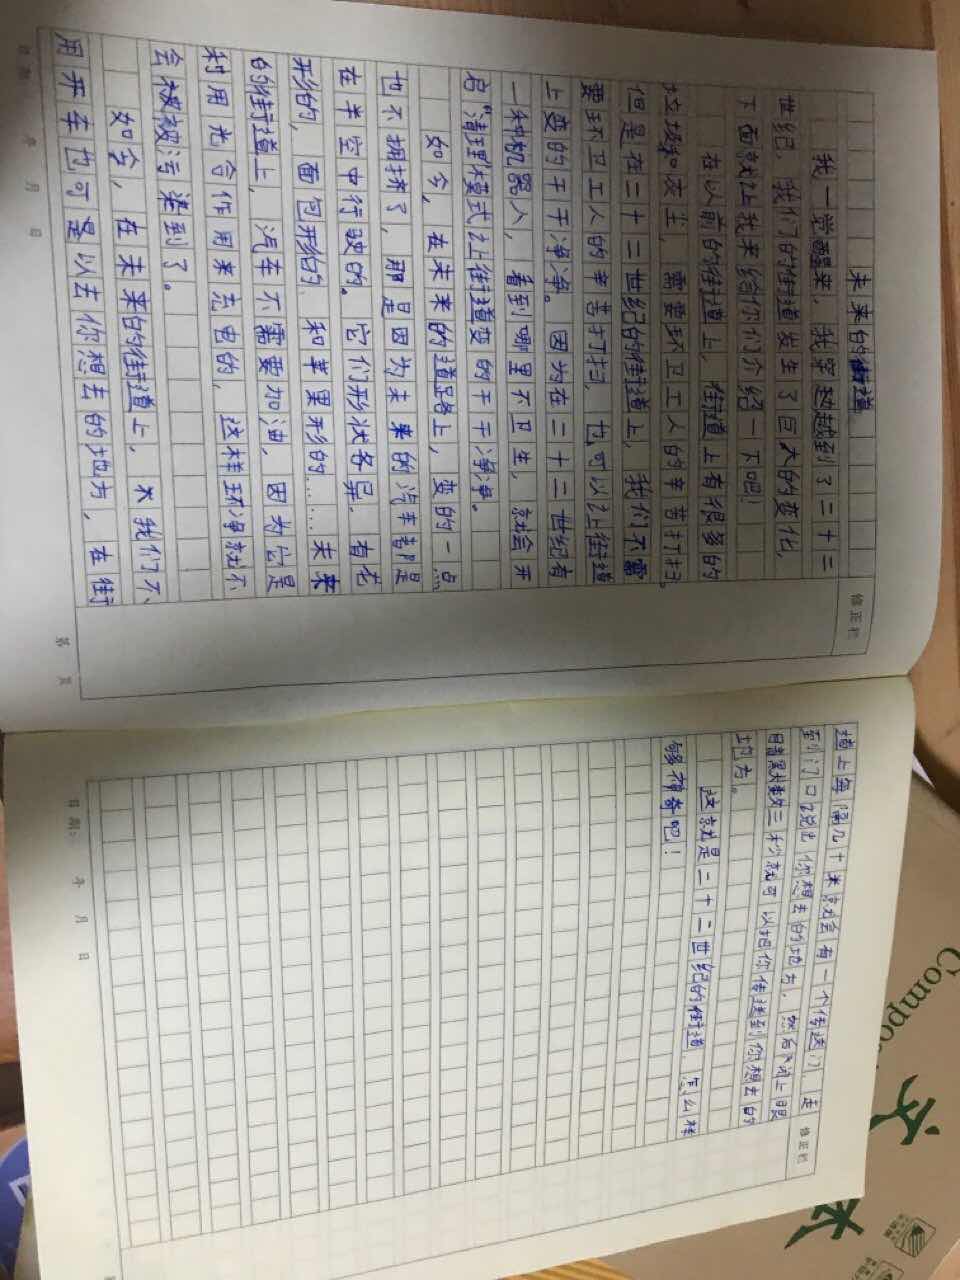 未来的街道
我一觉醒来，我穿越到了二十二
世纪，我们的街道发生了巨大的变化，
下面就让我来给你们介绍一下吧！
在以前的街道上，街道上有很多的
垃圾和灰尘，需要环卫工人的辛苦打扫。
但是在二十二世纪的街道上，我们不需
要环卫工人的辛苦打扫，也可以让街道
上变的干干净净。因为在二十二世纪有
一种机器人，看到哪里不卫生，就会开
启“清理”模式让街道变的干干净净。
如今，在未来的道路上，变的一点
也不拥挤了，那是因为未来的汽车都是
在半空中行驶的。它们形状各异，有花
形的，面包形的，和苹果形的……未来
的街道上，汽车不需要加油，因为它是
利用光合作用来充电的，这样环净就不
会被被污染到了。
如今，在未来的街道上，我们不
用开车也可是以去你想去的地方，在街
道上每隔几十米就会有一个传送门，走
到门口说出你想去的地方，然后闭上眼
睛默数三秒就可以把你传送到你想去的
地方。
这就是二十二世纪的街道，怎么样
够神奇吧！
修正栏
日期： 年 月 日
第 页
修正栏
日期： 年 月 日
Compo
文
本